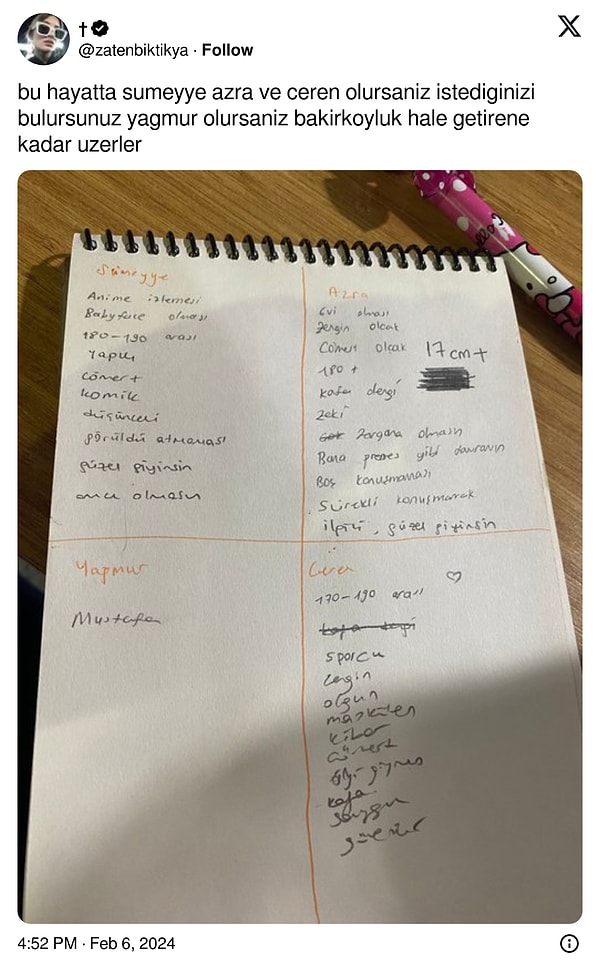 †
@zatenbiktikya · Follow
bu hayatta sumeyye azra ve ceren olursaniz istediginizi
bulursunuz yagmur olursaniz bakirkoyluk hale getirene
kadar uzerler
Sümeyye
Anime izlemesi
Babyface olması
180-190 arası
Yapılı
cömert
komik
düşünceli
görüldü atmaması
güzel giyinsin
Azra
Evi olması
Zengin olcak
Cömert olcak
17 cm+
180 +
kafa dengi
Zeki
Zorgana olmasın
Bana prenses gibi davransın
Boş konuşmaması
Sürekli konuşmamak
ilgili, güzel giyinsin
Yağmur
Mustafa
Ceren
170-190 arası
kafa dengi
sporcu
zengin
olgun
maskülen
kibar
cömert
kafa
saygın
4:52 PM · Feb 6, 2024